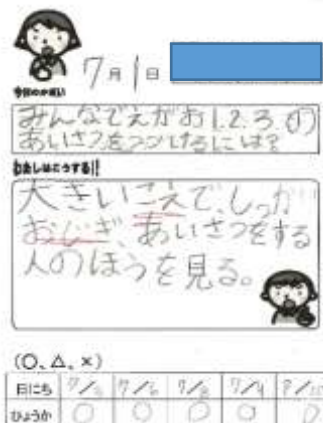 7月1日
今日のめあて
みんなでえがお1.2.3.の
あいさつをつづけるには?
わたしはこうする!!
大きいこえで、しっかり
おじぎ、あいさつをする
人のほうを見る。
(○、△、×)
日にち 7/ 7/6 7/8 7/9
ひょうか ○ ○ ○ ○ ○